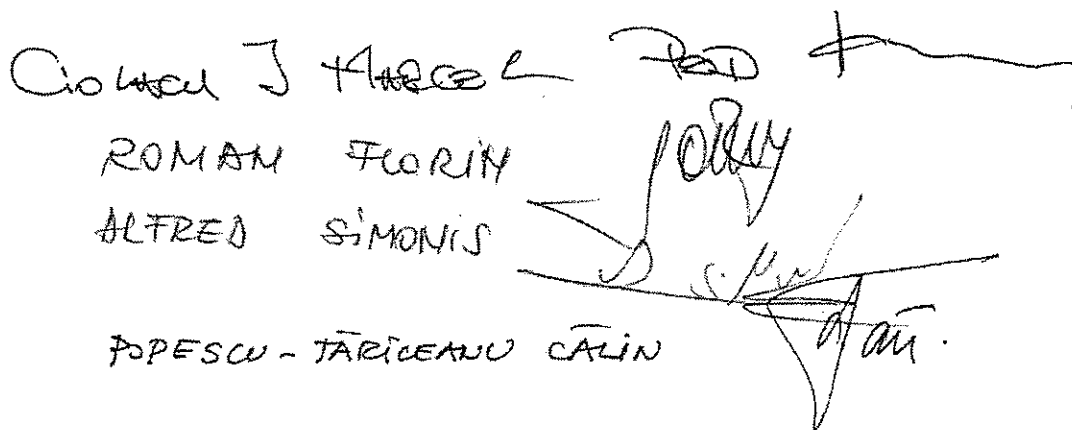 Ciolacu I Marcel PSD
ROMAN FLORIN
ALFRED SIMONIS
POPESCU - TĂRICEANU CĂLIN